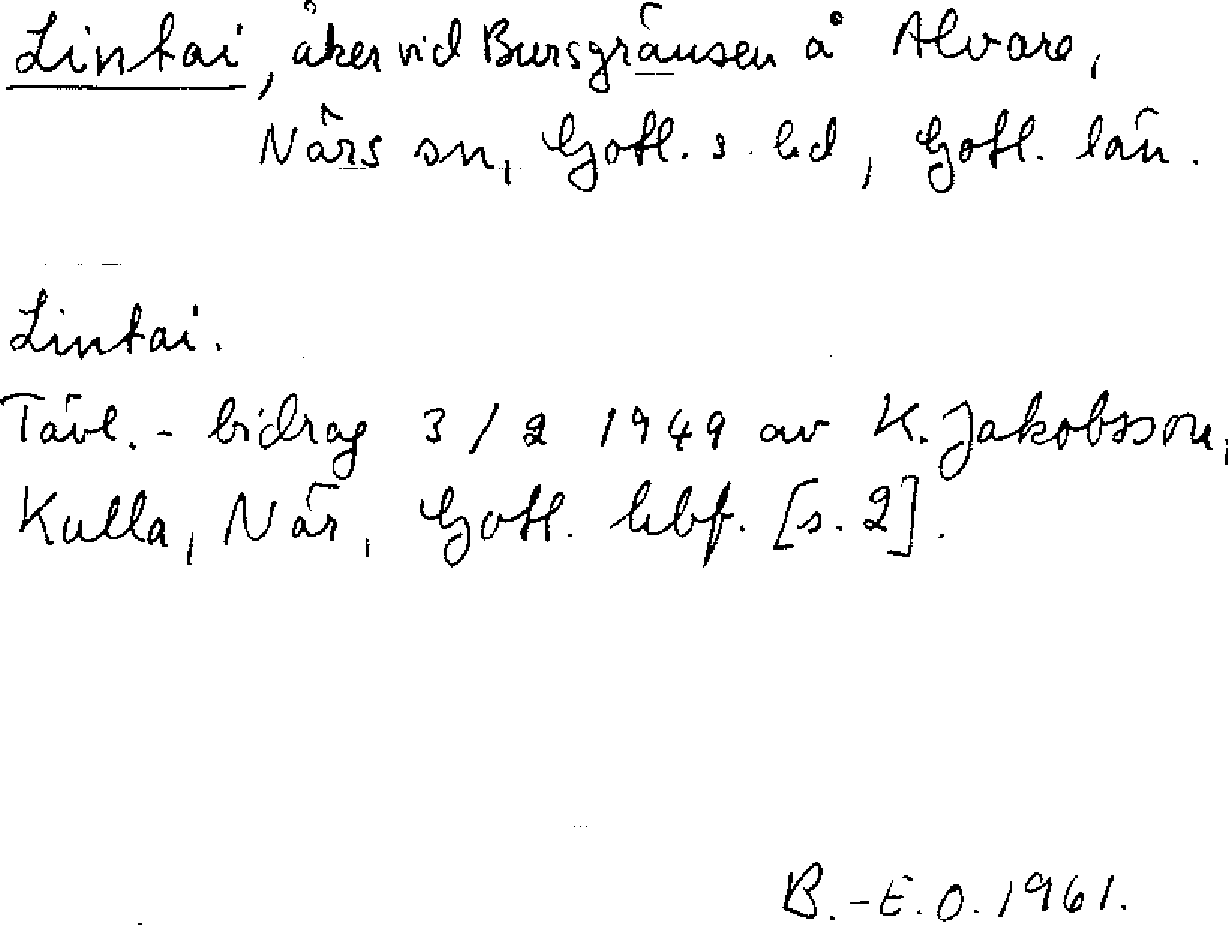 Lintai, åker vid Bursgränsen å Alvare,
Närs sn, Gotl. s. hd, Gotl. län.
Lintai.
Tävl.- bidrag 3/2 1949 av K. Jakobsson,
Kulla, När, Gotl. hbf. [s. 2].
B.-E.O. 1961.